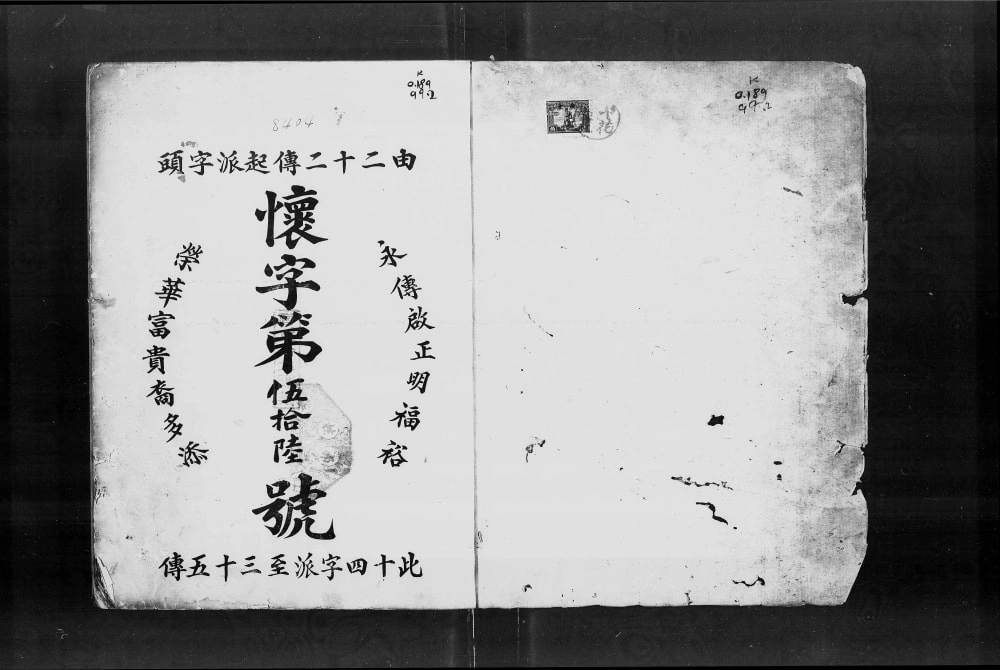 K
0.189
99.2
8404
由二十二傳起派字頭
永傳啟正明福裕
懷字第伍拾陸號
榮華富貴裔多添
此十四字派至三十五傳
K
0.189
99.2